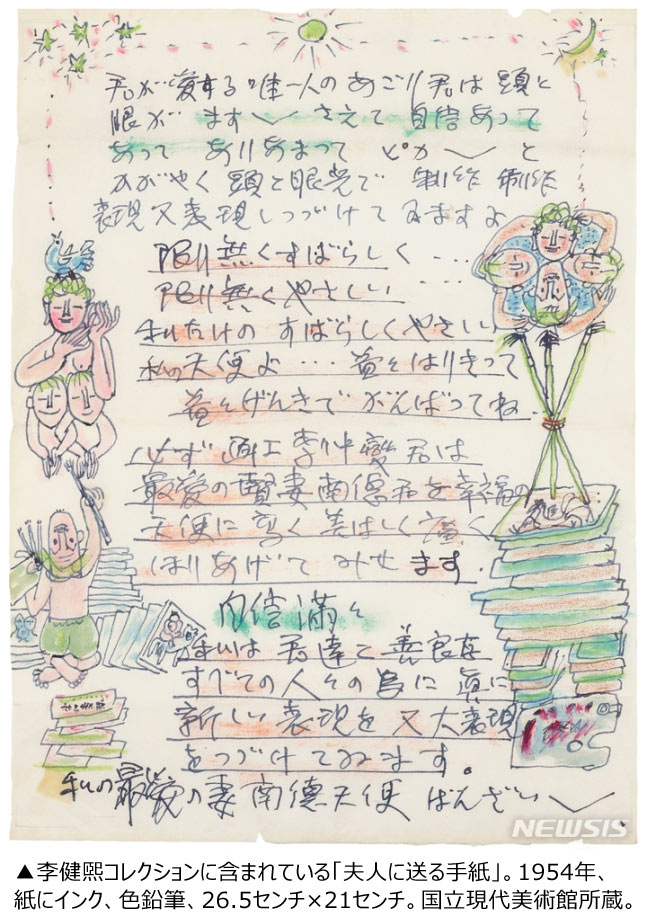 君が愛する唯一人のあごり君は頭と
眼が ます〱 さえて 自信あって
あって ありあまって ピカ〱 と
かがやく 頭と眼光で 制作 制作
表現又表現しつづけてゐますよ
限り無くすばらしく・・・
限り無くやさしい・・・
私だけの すばらしくやさしい
私の天使よ・・・ 益々はりきって
益々げんきで がんばってね.
必ず 画工李仲燮君は
最愛の賢妻南徳君を幸福の
天使に 高く
ほりあげて みせます.
自信満々
私は 君達と 善良な
すべての人々の為に 眞に
新しい 表現を 又大表現
をつづけてゐます。
私の最愛の妻南徳天使 ばんざい
NEWSIS
▲李健熙コレクションに含まれている「夫人に送る手紙」。1954年、
紙にインク、色鉛筆、26.5センチ×21センチ。国立現代美術館所蔵。